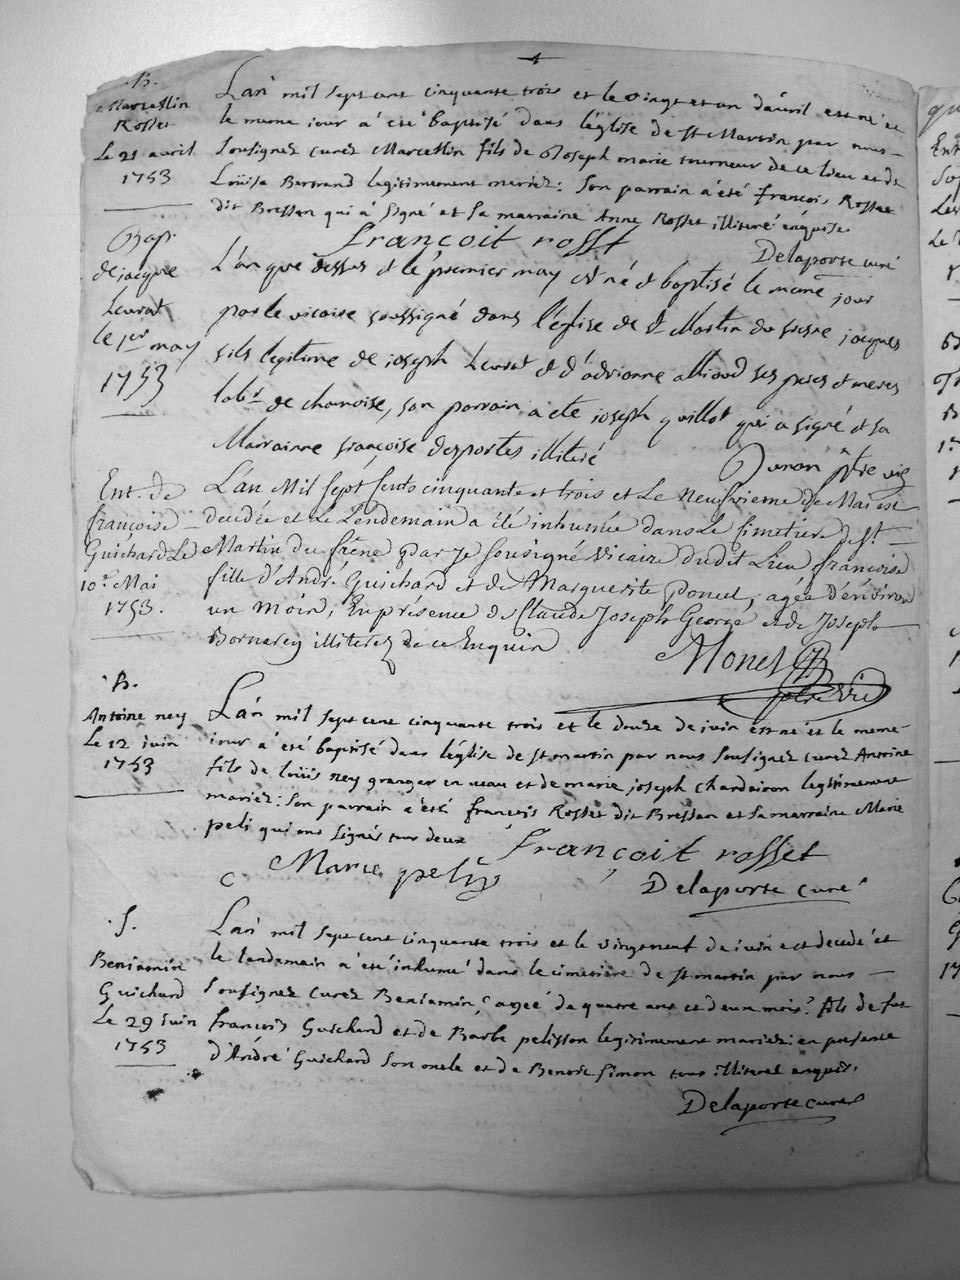 B.
Marcellin
Rosset
Le 21 avril
1753
L'an mil sept cent cinquante trois et le vingt et un d'avril est né et
le meme iour a été baptisé dans l'église de st Martin par nous
soussignez curez Marcellin fils de Joseph marie tourneur de ce lieu et de
Loüise Bertrand legitimement mariez: son parrain a été françois Rosset
dit Bressan qui a signé et sa marraine Anne Rosset illiteré enquise.
françoit rosset
Delaporte curé
Bapt.
de jacque
Levrat
le 1er may
1753
L'an que dessus et le premier may est né et baptisé le meme jour
par le vicaire soussigné dans l'église de st Martin du fresne jacques
fils legitime de joseph Levrat et d'adrianne alliod ses peres et meres
labr. de chamoise, son parrain a eté joseph guillot qui a signé et sa
Marrainne françoise desportes illiteré
Dunan ptre vic
Ent. de
françoise
Guichard Le
10e Mai
1753.
L'an Mil sept cents cinquante et trois et Le neufvieme de Mai est
decedée et Le Lendemain a été inhumée dans Le Cimetiere de st
Martin du frêne par je sousigné vicaire dudit Lieu françoise
fille d'André Guichard et de Marguerite Poncet, agée d'environ
un mois, En presence de Claude Joseph George et de Joseph
Bornarey illiterez de ce Enquis
Monet
ptre vic
B.
Antoine ney
Le 12 iuin
1753
L'an mil sept cent cinquante trois et le douze de iuin est né et le meme
iour a été baptisé dans l'église de st martin par nous soussignez curez Antoine
fils de loüis ney granger en et de marie joseph chardairon legitimement
mariez: son parrain a été françois Rosset dit Bressan et sa marraine Marie
peli qui ont signés tous deux
françoit rosset
Marie peli
Delaporte curé
S.
Beniamin
Guichard
Le 29 iuin
1753
L'an mil sept cent cinquante trois et le vingt neuf de iuin est decedé et
le landemain a été inhumé dans le cimetiere de st martin par nous
soussignez curez Beniamin, agée de quatre ans et deux mois, fils de fut
françois Guichard et de Barbe pelisson legitimement mariez: en presence
d'André Guichard son oncle et de Benoit simon tous illiterez enquis.
Delaporte curé